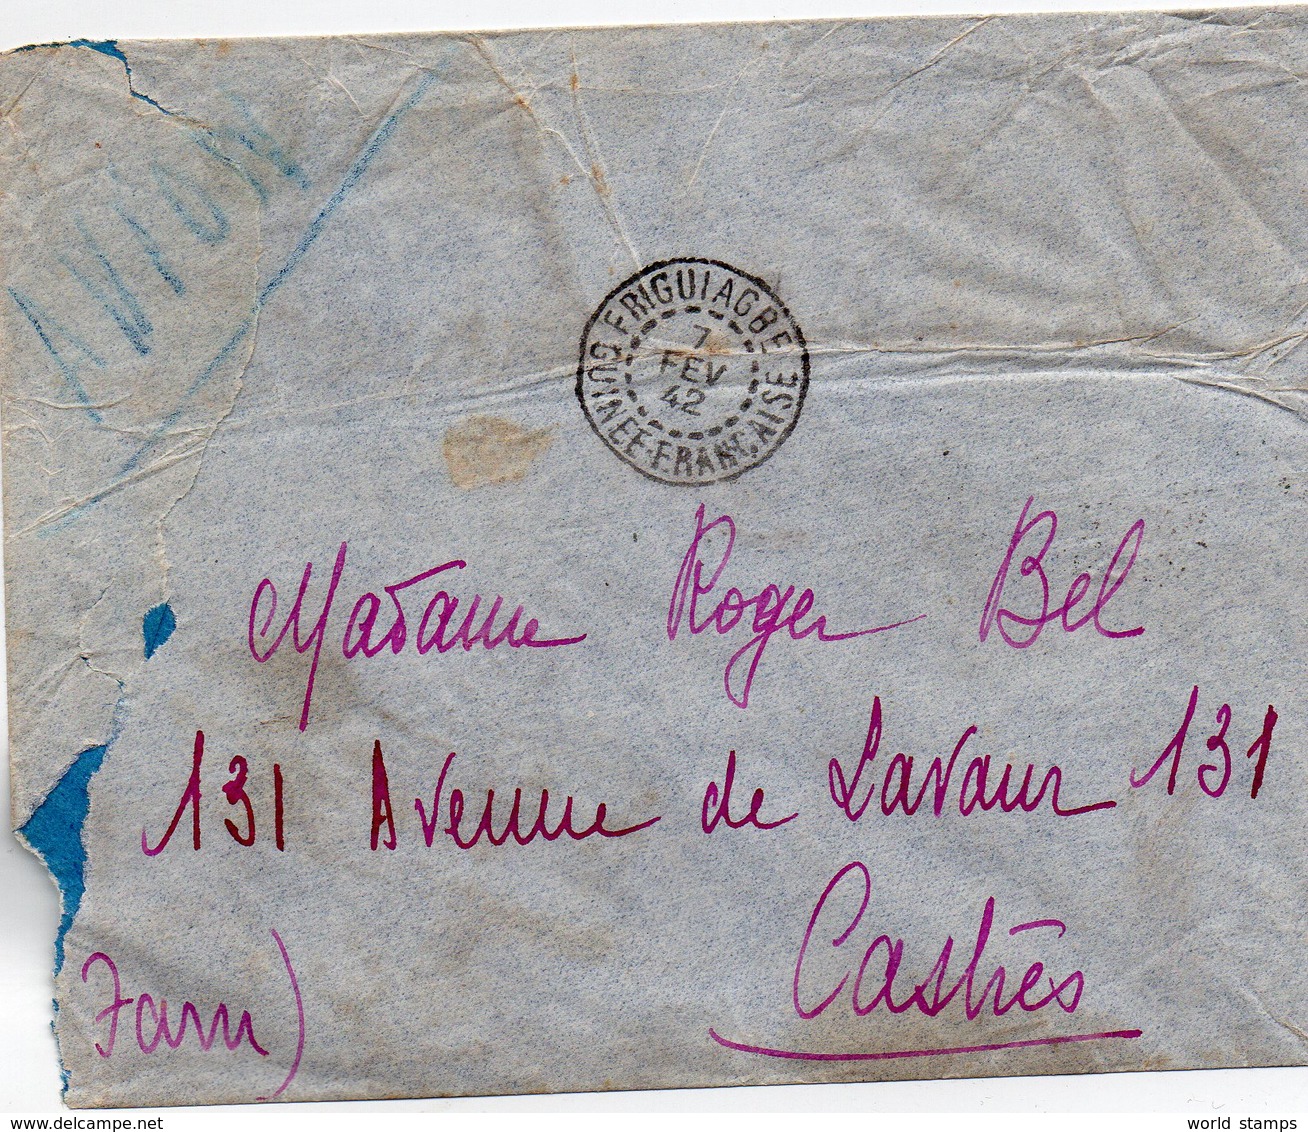 AVION
FRIGUIAGBE
7
FEV
42
GUINÉE-FRANÇAISE
Madame Roger Bel
131 Avenue de Lavaur 131
Castrès
Tarn)
delcampe.net
world stamps